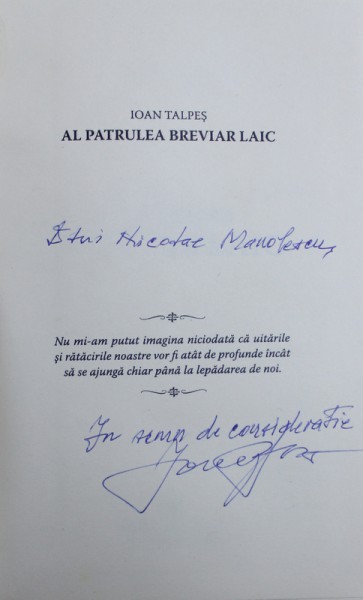 IOAN TALPEȘ
AL PATRULEA BREVIAR LAIC
Dlui Nicolae Manolescu,
Nu mi-am putut imagina niciodată că uitările
și rătăcirile noastre vor fi atât de profunde încât
să se ajungă chiar până la lepădarea de noi.
In semn de considerație